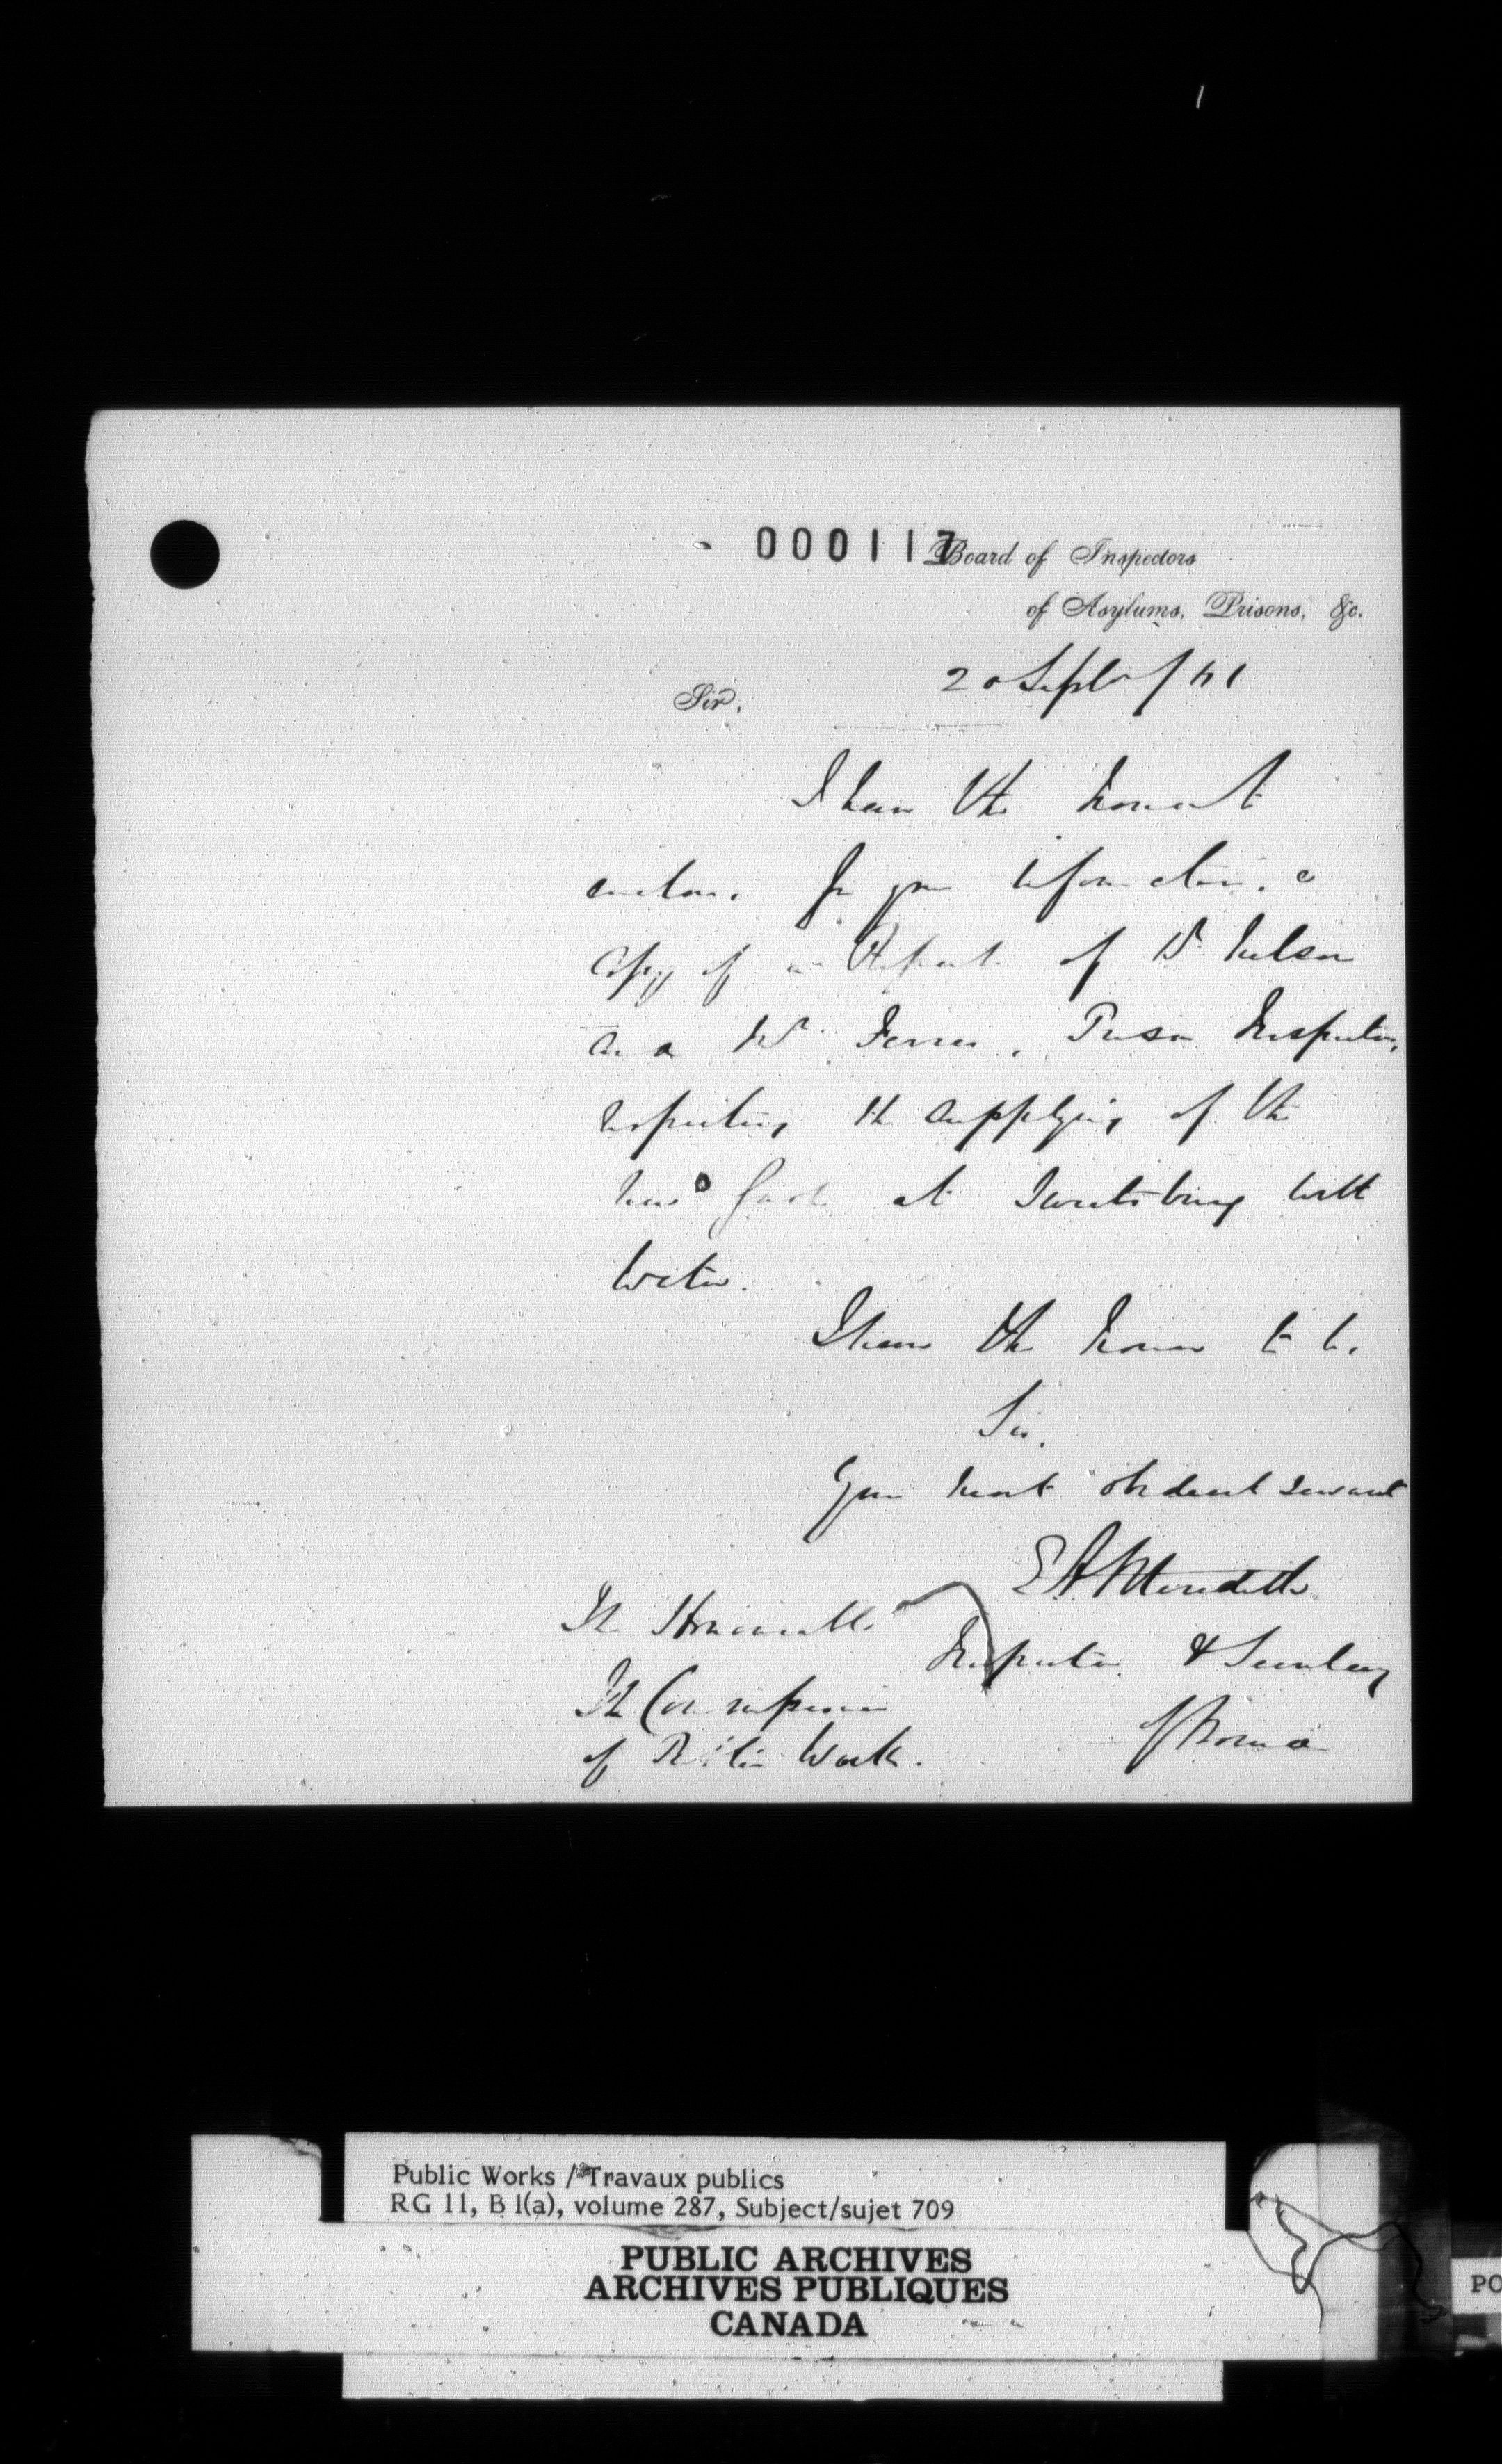 000117
Board of Inspectors
of Asylums, Prisons, &c.
20 Sept / 61
Sir,
I have the honor to
enclose for your information, a
copy of a Report of Dr Nelson
and Mr Ferres, Prison Inspectors,
respecting the supplying of the
new Gaol at Sweetsburg with
water.
I have the honor to be
Sir,
Your most obedient servant
E A Meredith
The Honorable
Inspector & Secretary
The Commissioner
of Board
of Public Works.
Public Works / Travaux publics
RG 11, B 1(a), volume 287, Subject/sujet 709
PUBLIC ARCHIVES
ARCHIVES PUBLIQUES
CANADA
PO